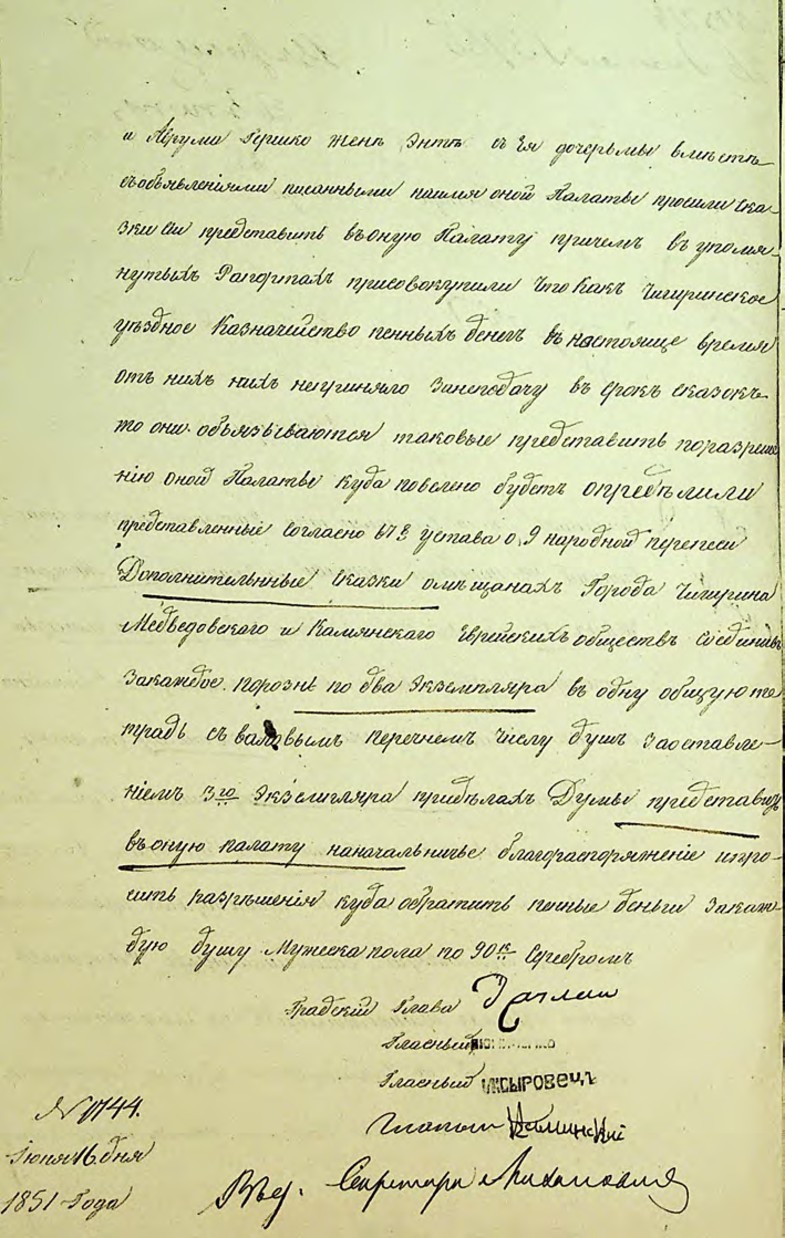 и Аврума Гершко женѣ Энтѣ съ Ея дочерьмы вмѣстѣ
съобъявленіями писанными наимя оной Палаты просили Ска-
зки сіи представить въоную Палату причемъ въ упомя-
нутыхъ Рапортахъ присовокупили что какъ Чигиринское
уѣздное Казначейство пенныхъ денегъ въ настояще время
отъ нихъ нихъ непрыняло Занеподачу въ Срокъ сказокъ
то они обьязываются таковые представить поразреше
нію оной Палаты куда повелено будетъ опредѣлили
представленные Согласно 67 § устава о 9 народной переписи
Дополнительнные Сказки омѣщанахъ Города Чигирина
Медведовского и Камянскаго Еврейскихъ обществъ Соединивъ
Закаждое порознѣ по два Экземпляра въ одну общую те
традь съ валовымъ перечнемъ числу душъ заоставле-
ніемъ 3го Экземпляра придѣлахъ Думы представить
въоную палату наначальничье благораспоряженіе ипро-
сить разрѣшенія куда обратить пенные деньги Закаж-
дую душу Мужеска пола по 90 к Серебромъ
Градский Глава
Гласный
Гласный СЫРОВЕЦЪ
Каминский
Вѣд. Секретаря
№ 1744.
Іюня 16. дня
1851 Года